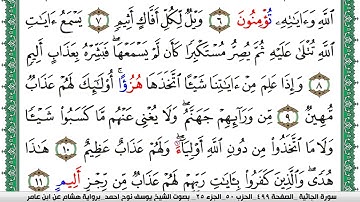 ٱللَّهِ وَءَايَٰتِهِۦ تُؤْمِنُونَ ٦ وَيْلٌ لِّكُلِّ أَفَّاكٍ أَثِيمٍ ٧ يَسْمَعُ ءَايَٰتِ
ٱللَّهِ تُتْلَىٰ عَلَيْهِ ثُمَّ يُصِرُّ مُسْتَكْبِرًا كَأَن لَّمْ يَسْمَعْهَا ۖ فَبَشِّرْهُ بِعَذَابٍ أَلِيمٍ
٨ وَإِذَا عَلِمَ مِنْ ءَايَٰتِنَا شَيْـًٔا ٱتَّخَذَهَا هُزُؤًا ۚ أُو۟لَٰٓئِكَ لَهُمْ عَذَابٌ
مُّهِينٌ ٩ مِّن وَرَآئِهِمْ جَهَنَّمُ ۖ وَلَا يُغْنِى عَنْهُم مَّا كَسَبُوا۟ شَيْـًٔا
وَلَا مَا ٱتَّخَذُوا۟ مِن دُونِ ٱللَّهِ أَوْلِيَآءَ ۖ وَلَهُمْ عَذَابٌ عَظِيمٌ ١٠ هَٰذَا
هُدًى ۖ وَٱلَّذِينَ كَفَرُوا۟ بِـَٔايَٰتِ رَبِّهِمْ لَهُمْ عَذَابٌ مِّن رِّجْزٍ أَلِيمٍ ١١
سورة الجاثية_ الصفحة ٤٩٩_الحزب ٥٠_الجزء ٢٥_ بصوت الشيخ يوسف نوح احمد_برواية هشام عن ابن عامر